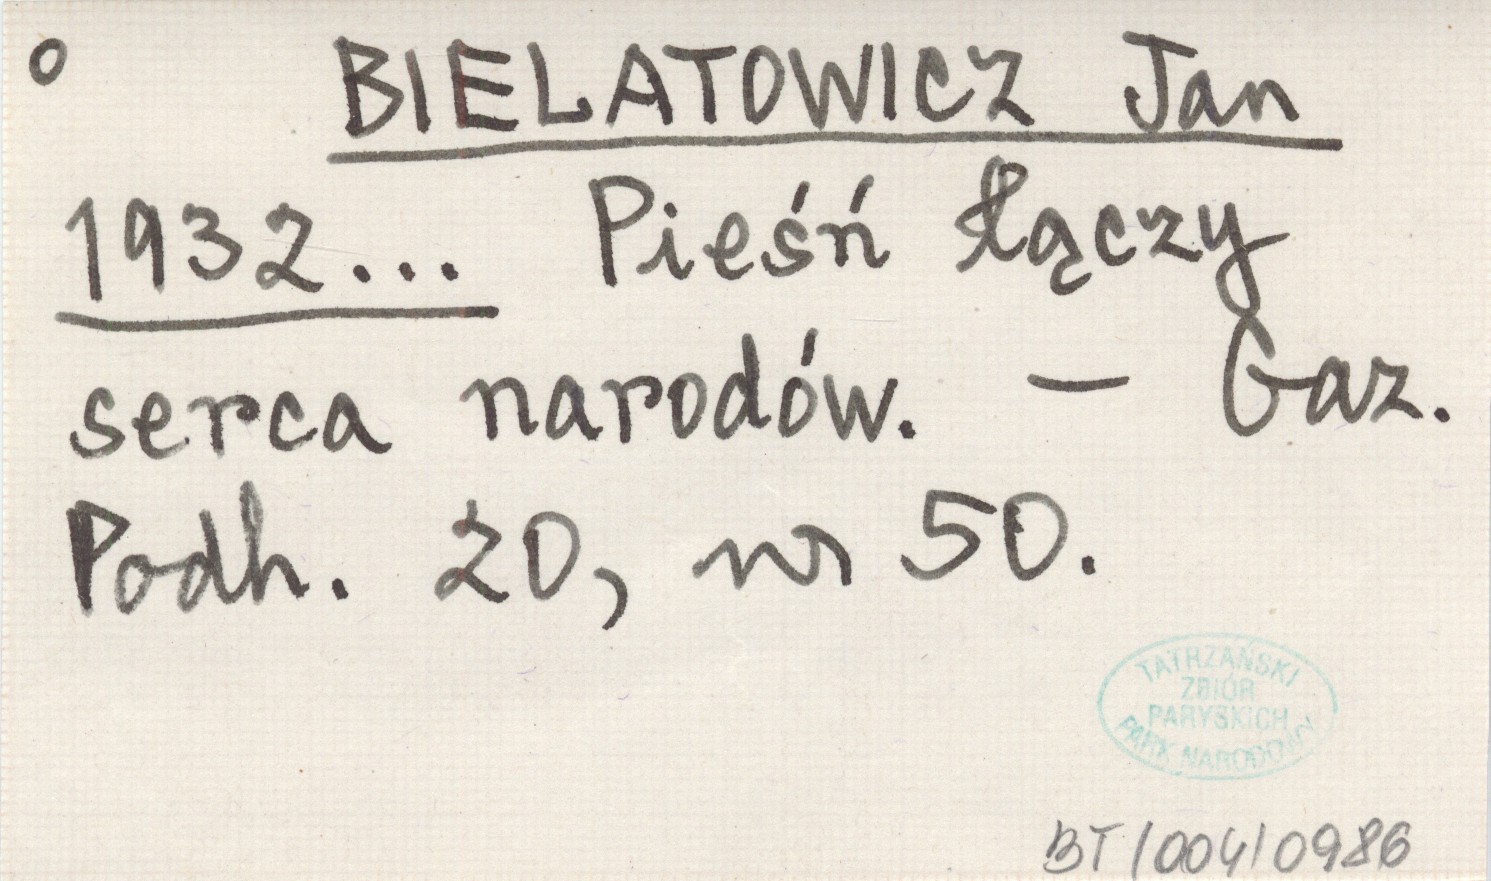 o BIELATOWICZ Jan
1932... Pieśń łączy
serca narodów. — Gaz.
Podh. 20, nr 50.
TATRZAŃSKI
ZBIÓR
PARYSKICH
PARK NARODOWY
BT/004/0986